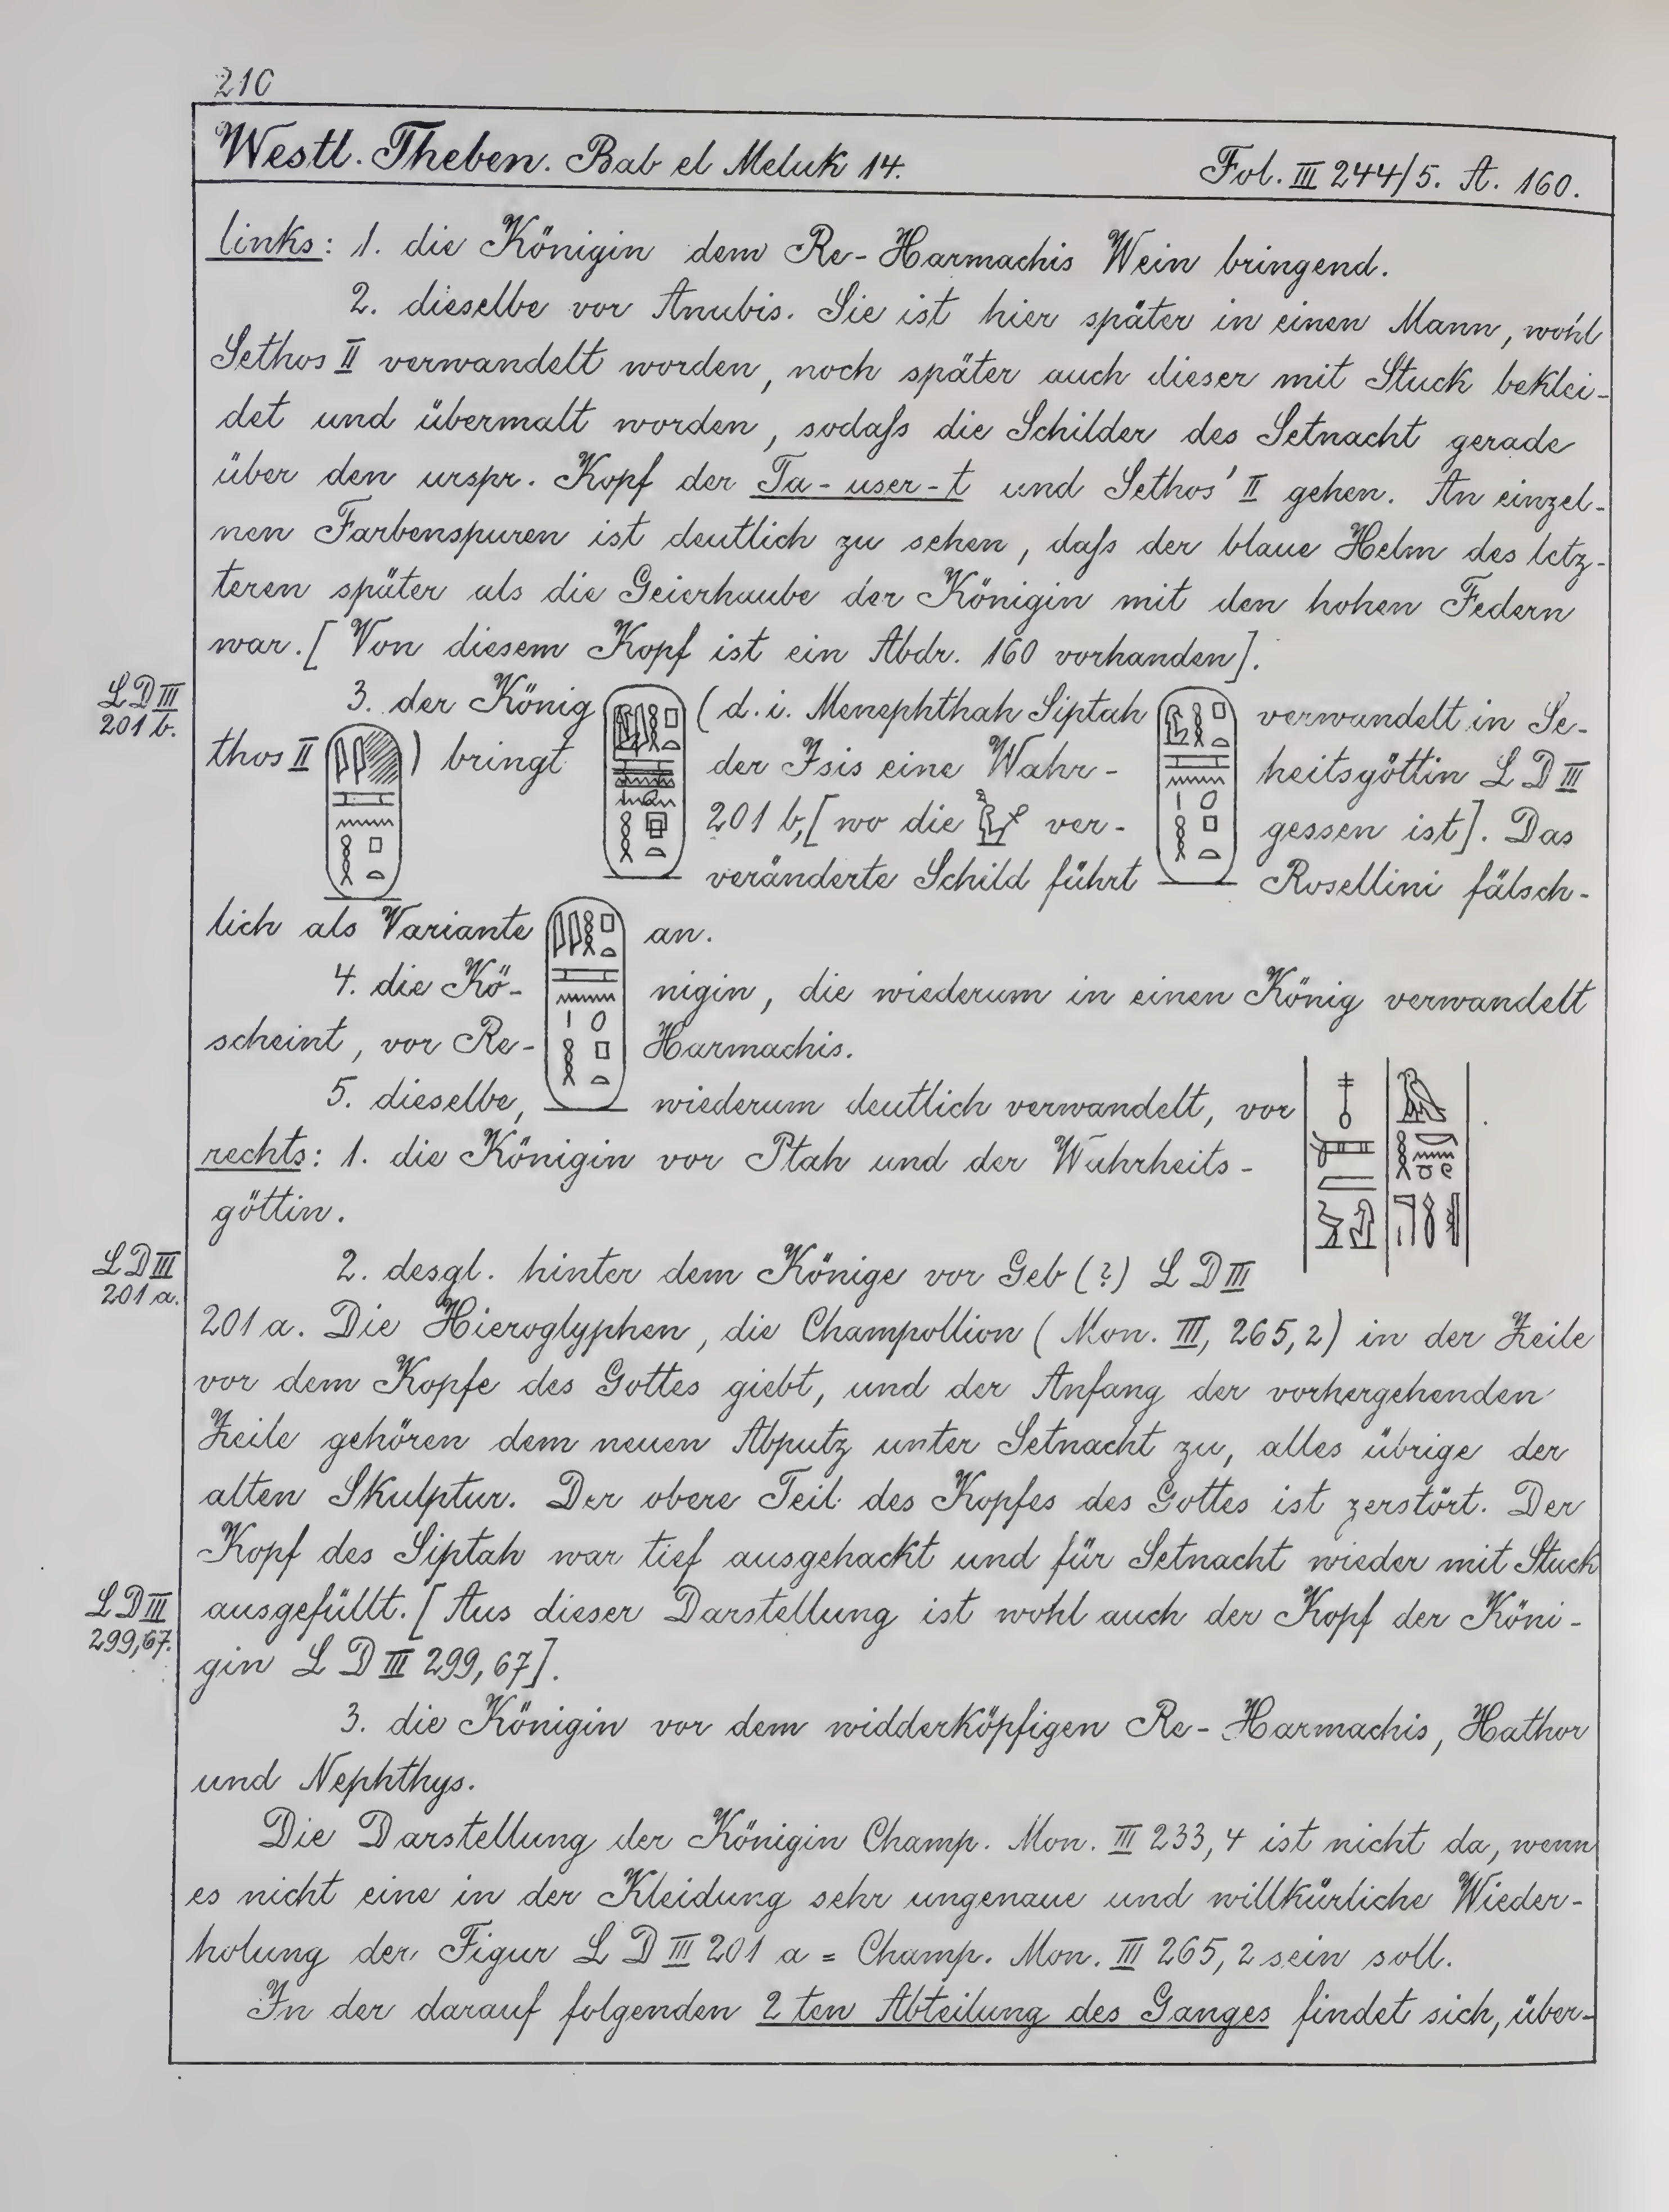 210
Westl. Theben. Bab el Meluk 14. Fol. III 244/5. A. 160.
links: 1. die Königin dem Re-Harmachis Wein bringend.
2. dieselbe vor Anubis. Sie ist hier später in einen Mann, wohl
Sethos II verwandelt worden, noch später auch dieser mit Stuck beklei-
det und übermalt worden, sodaſs die Schilder des Setnacht gerade
über den urspr. Kopf der Ta-user-t und Sethos' II gehen. An einzel-
nen Farbenspuren ist deutlich zu sehen, daſs der blaue Helm des letz-
teren später als die Geierhaube der Königin mit den hohen Federn
war. [Von diesem Kopf ist ein Abdr. 160 vorhanden].
LD III
201 b.
3. der König (d. i. Menephthah Siptah verwandelt in Se-
thos II ) bringt der Isis eine Wahr- heitsgöttin LD III
201 b, [wo die ver- gessen ist]. Das
veränderte Schild führt Rosellini fälsch-
lich als Variante an.
4. die Kö- nigin, die wiederum in einen König verwandelt
scheint, vor Re- Harmachis.
5. dieselbe, wiederum deutlich verwandelt, vor
rechts: 1. die Königin vor Ptah und der Wahrheits-
göttin.
LD III
201 a.
2. desgl. hinter dem Könige vor Geb (?) LD III
201 a. Die Hieroglyphen, die Champollion (Mon. III, 265,2) in der Zeile
vor dem Kopfe des Gottes giebt, und der Anfang der vorhergehenden
Zeile gehören dem neuen Abputz unter Setnacht zu, alles übrige der
alten Skulptur. Der obere Teil des Kopfes des Gottes ist zerstört. Der
Kopf des Siptah war tief ausgehackt und für Setnacht wieder mit Stuck
LD III
299,67.
ausgefüllt. [Aus dieser Darstellung ist wohl auch der Kopf der Köni-
gin LD III 299,67].
3. die Königin vor dem widderköpfigen Re-Harmachis, Hathor
und Nephthys.
Die Darstellung der Königin Champ. Mon. III 233,4 ist nicht da, wenn
es nicht eine in der Kleidung sehr ungenaue und willkürliche Wieder-
holung der Figur LD III 201 a = Champ. Mon. III 265,2 sein soll.
In der darauf folgenden 2ten Abteilung des Ganges findet sich, über-